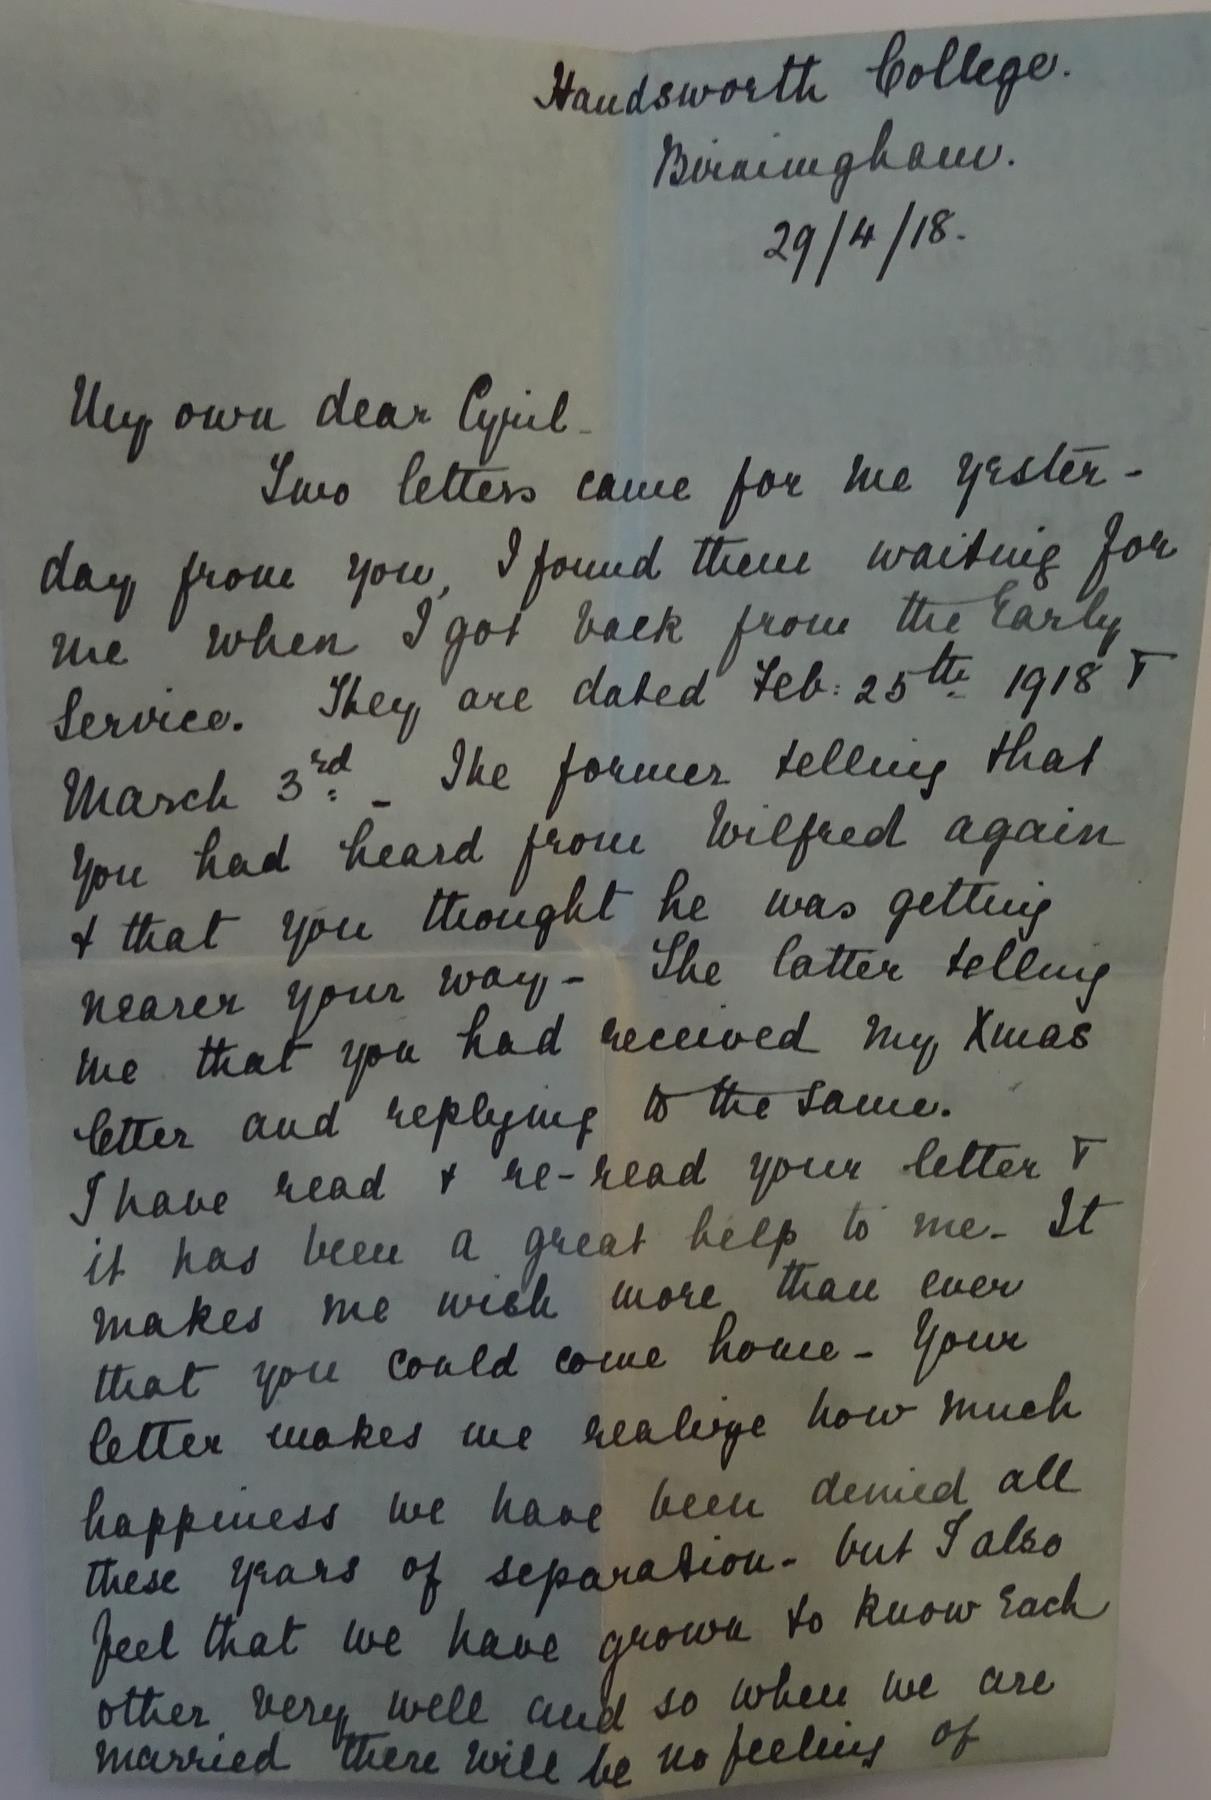 Handsworth College.
Birmingham.
29/4/18.
My own dear Cyril_
Two letters came for me yester-
day from you, I found them waiting for
me when I got back from the Early
Service. They are dated Feb: 25th 1918 &
March 3rd. _ The former telling that
you had heard from Wilfred again
& that you thought he was getting
nearer your way - The latter telling
me that you had received my Xmas
letter and replying to the same.
I have read & re-read your letter &
it has been a great help to me - It
makes me wish more than ever
that you could come home - Your
letter makes me realize how much
happiness we have been denied all
these years of separation - but I also
feel that we have grown to know Each
other very well and so when we are
married there will be no feeling of